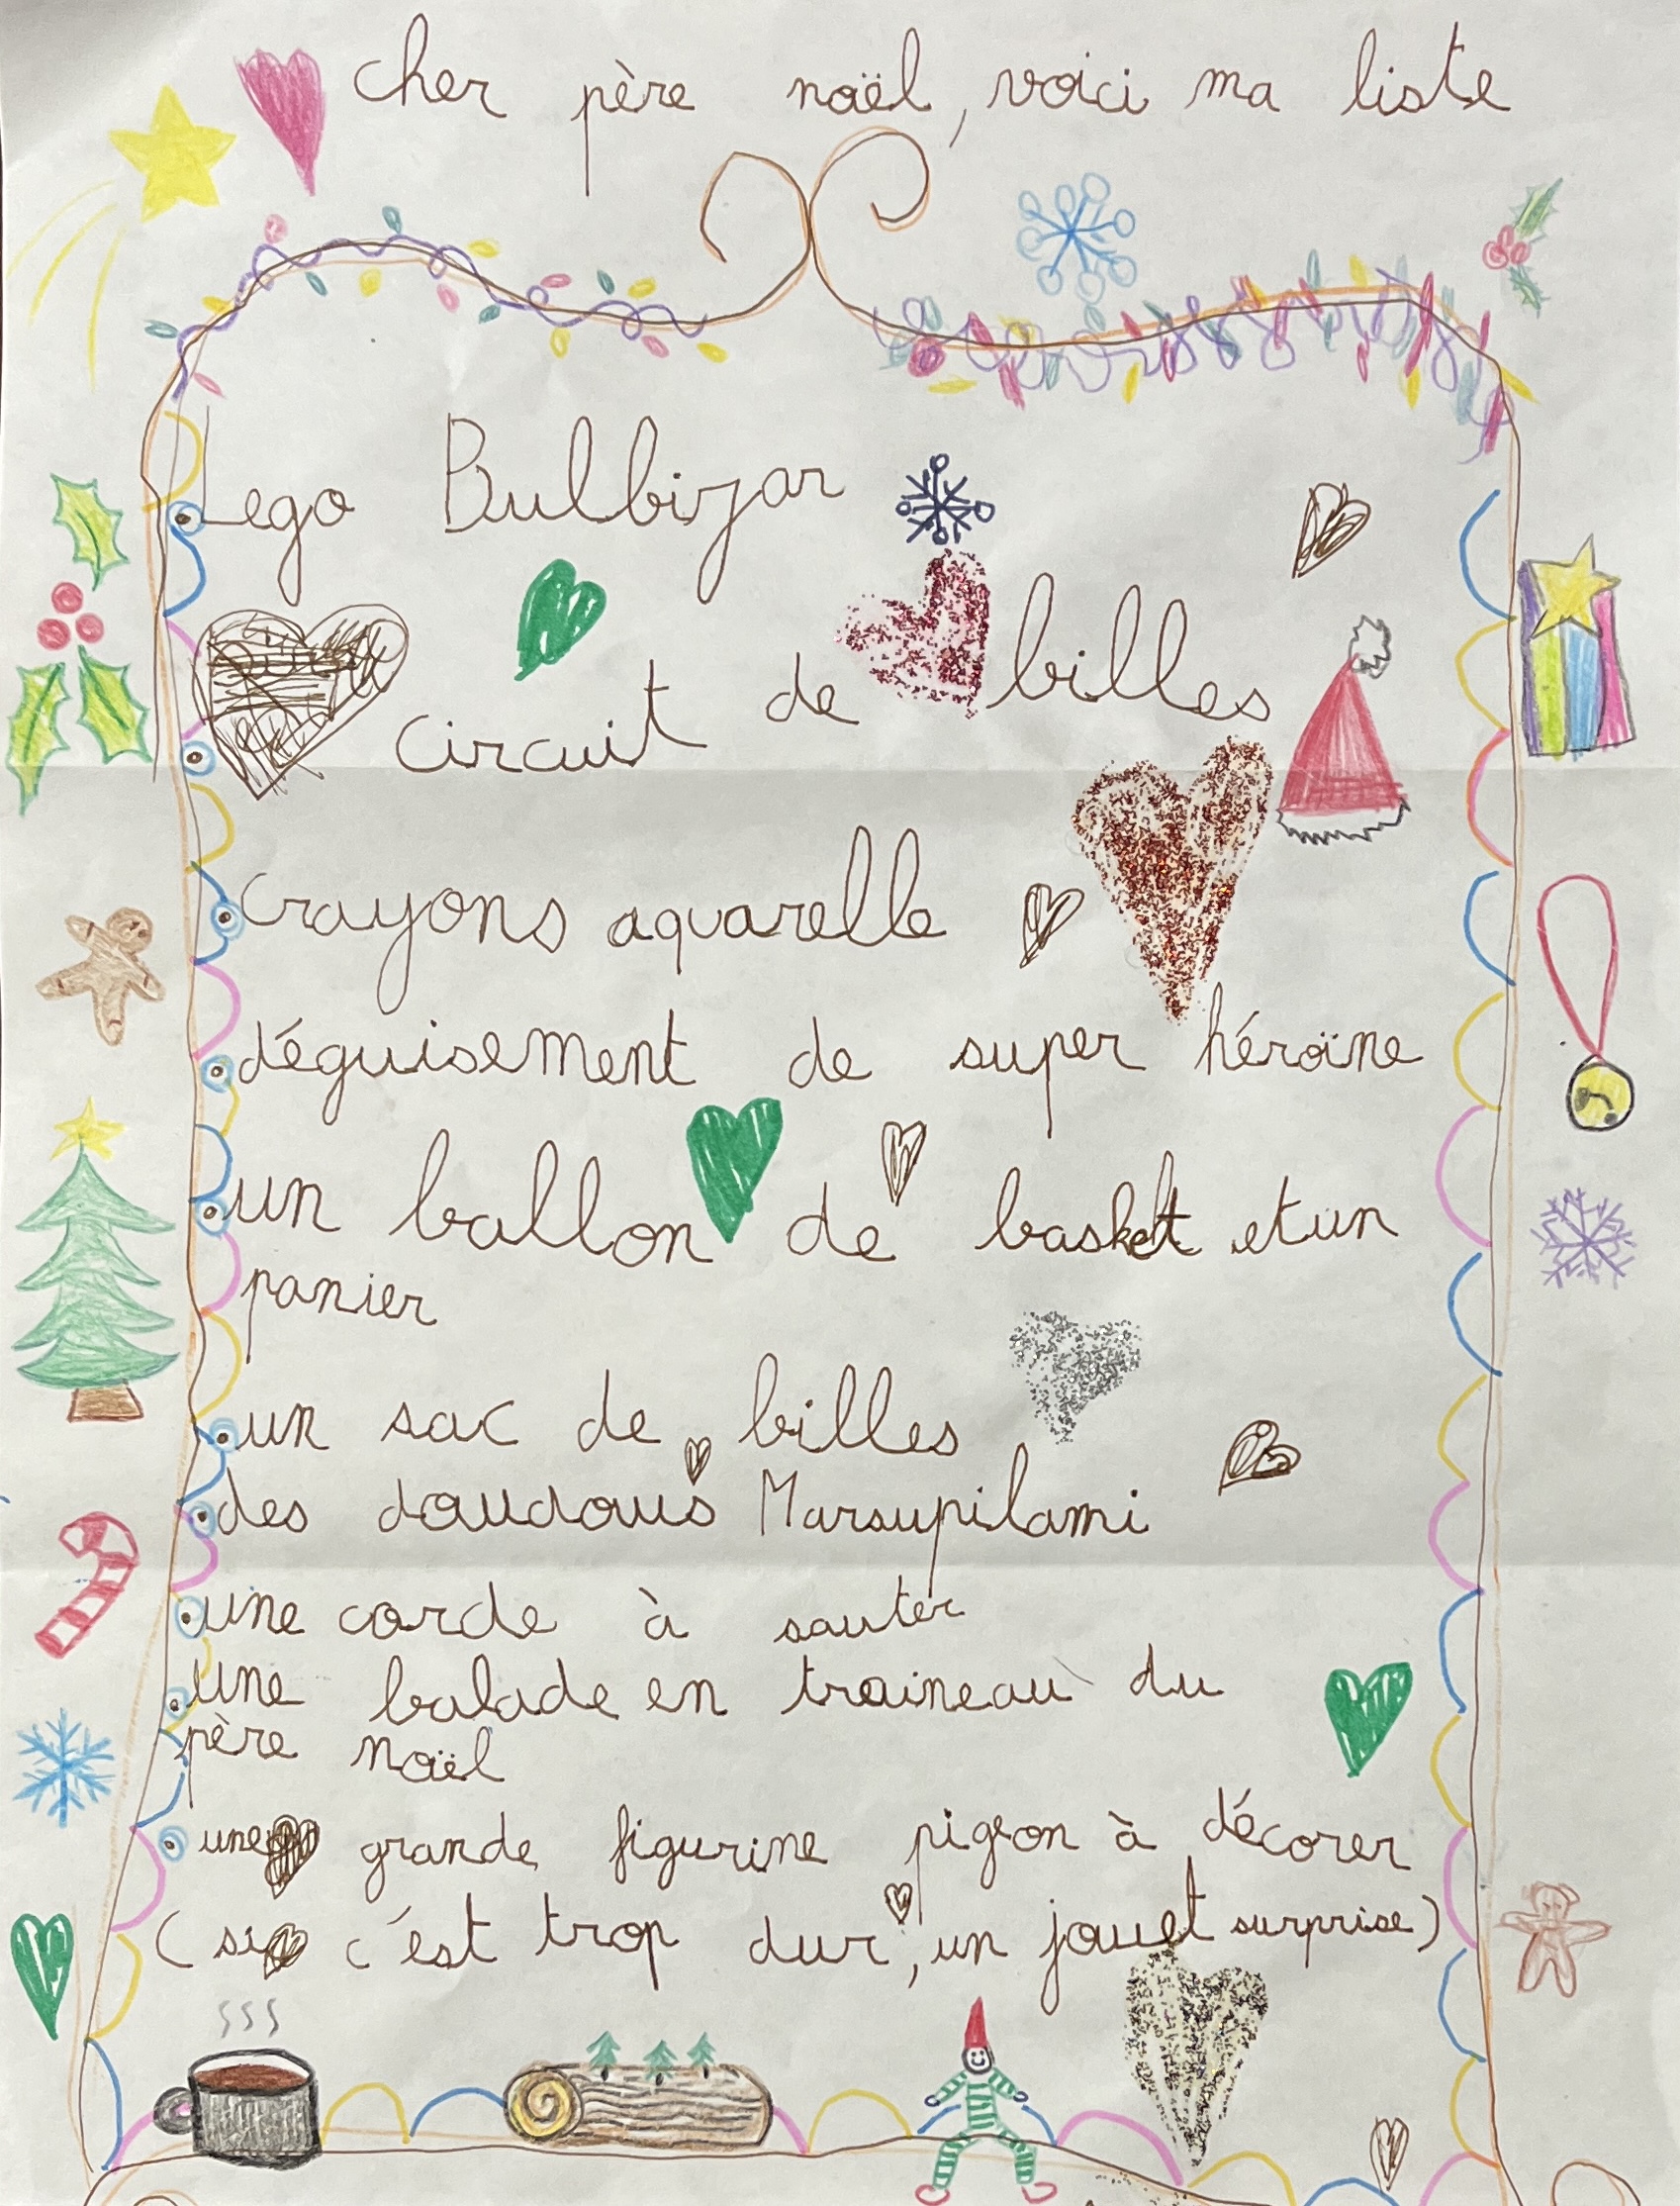 cher père noël, voici ma liste
Lego Bulbizar
Circuit de billes
crayons aquarelle
déguisement de super héroïne
un ballon de basket et un
panier
un sac de billes
des doudous Marsupilami
une corde à sauter
une balade en traineau du
père noël
une grande figurine pigeon à décorer
(si c'est trop dur, un jouet surprise)